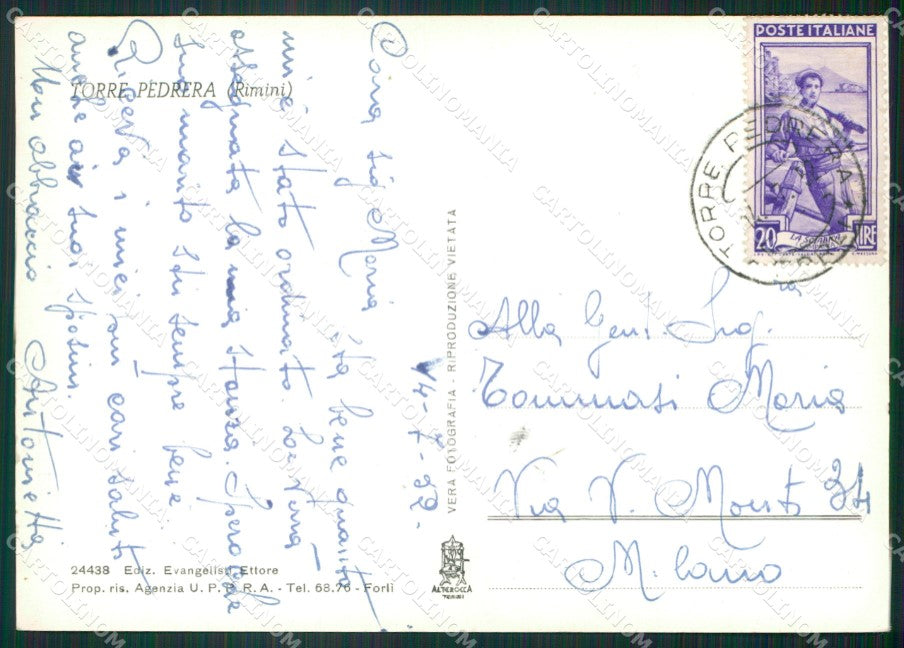 TORRE PEDRERA (Rimini)
Cara sig Maria, sta bene quanto
mi è stato ordinato e verrà
assegnata la mia stanza. Spero che
suo marito stii sempre bene.
Riceva i miei più cari saluti
anche ai suoi sposini.
Un abbraccio Antonietta
14-7-
VERA FOTOGRAFIA - RIPRODUZIONE VIETATA
24438 Ediz. Evangelisti Ettore
Prop. ris. Agenzia U. P. P. R. A. - Tel. 68.76 - Forlì
ALTEROCCA
TERNI
POSTE ITALIANE
20 LIRE
TORRE PEDRERA
Alla Gent. Sig.ra
Tommasi Maria
Via V. Monti 34
Milano
CARTOLINOMANIA